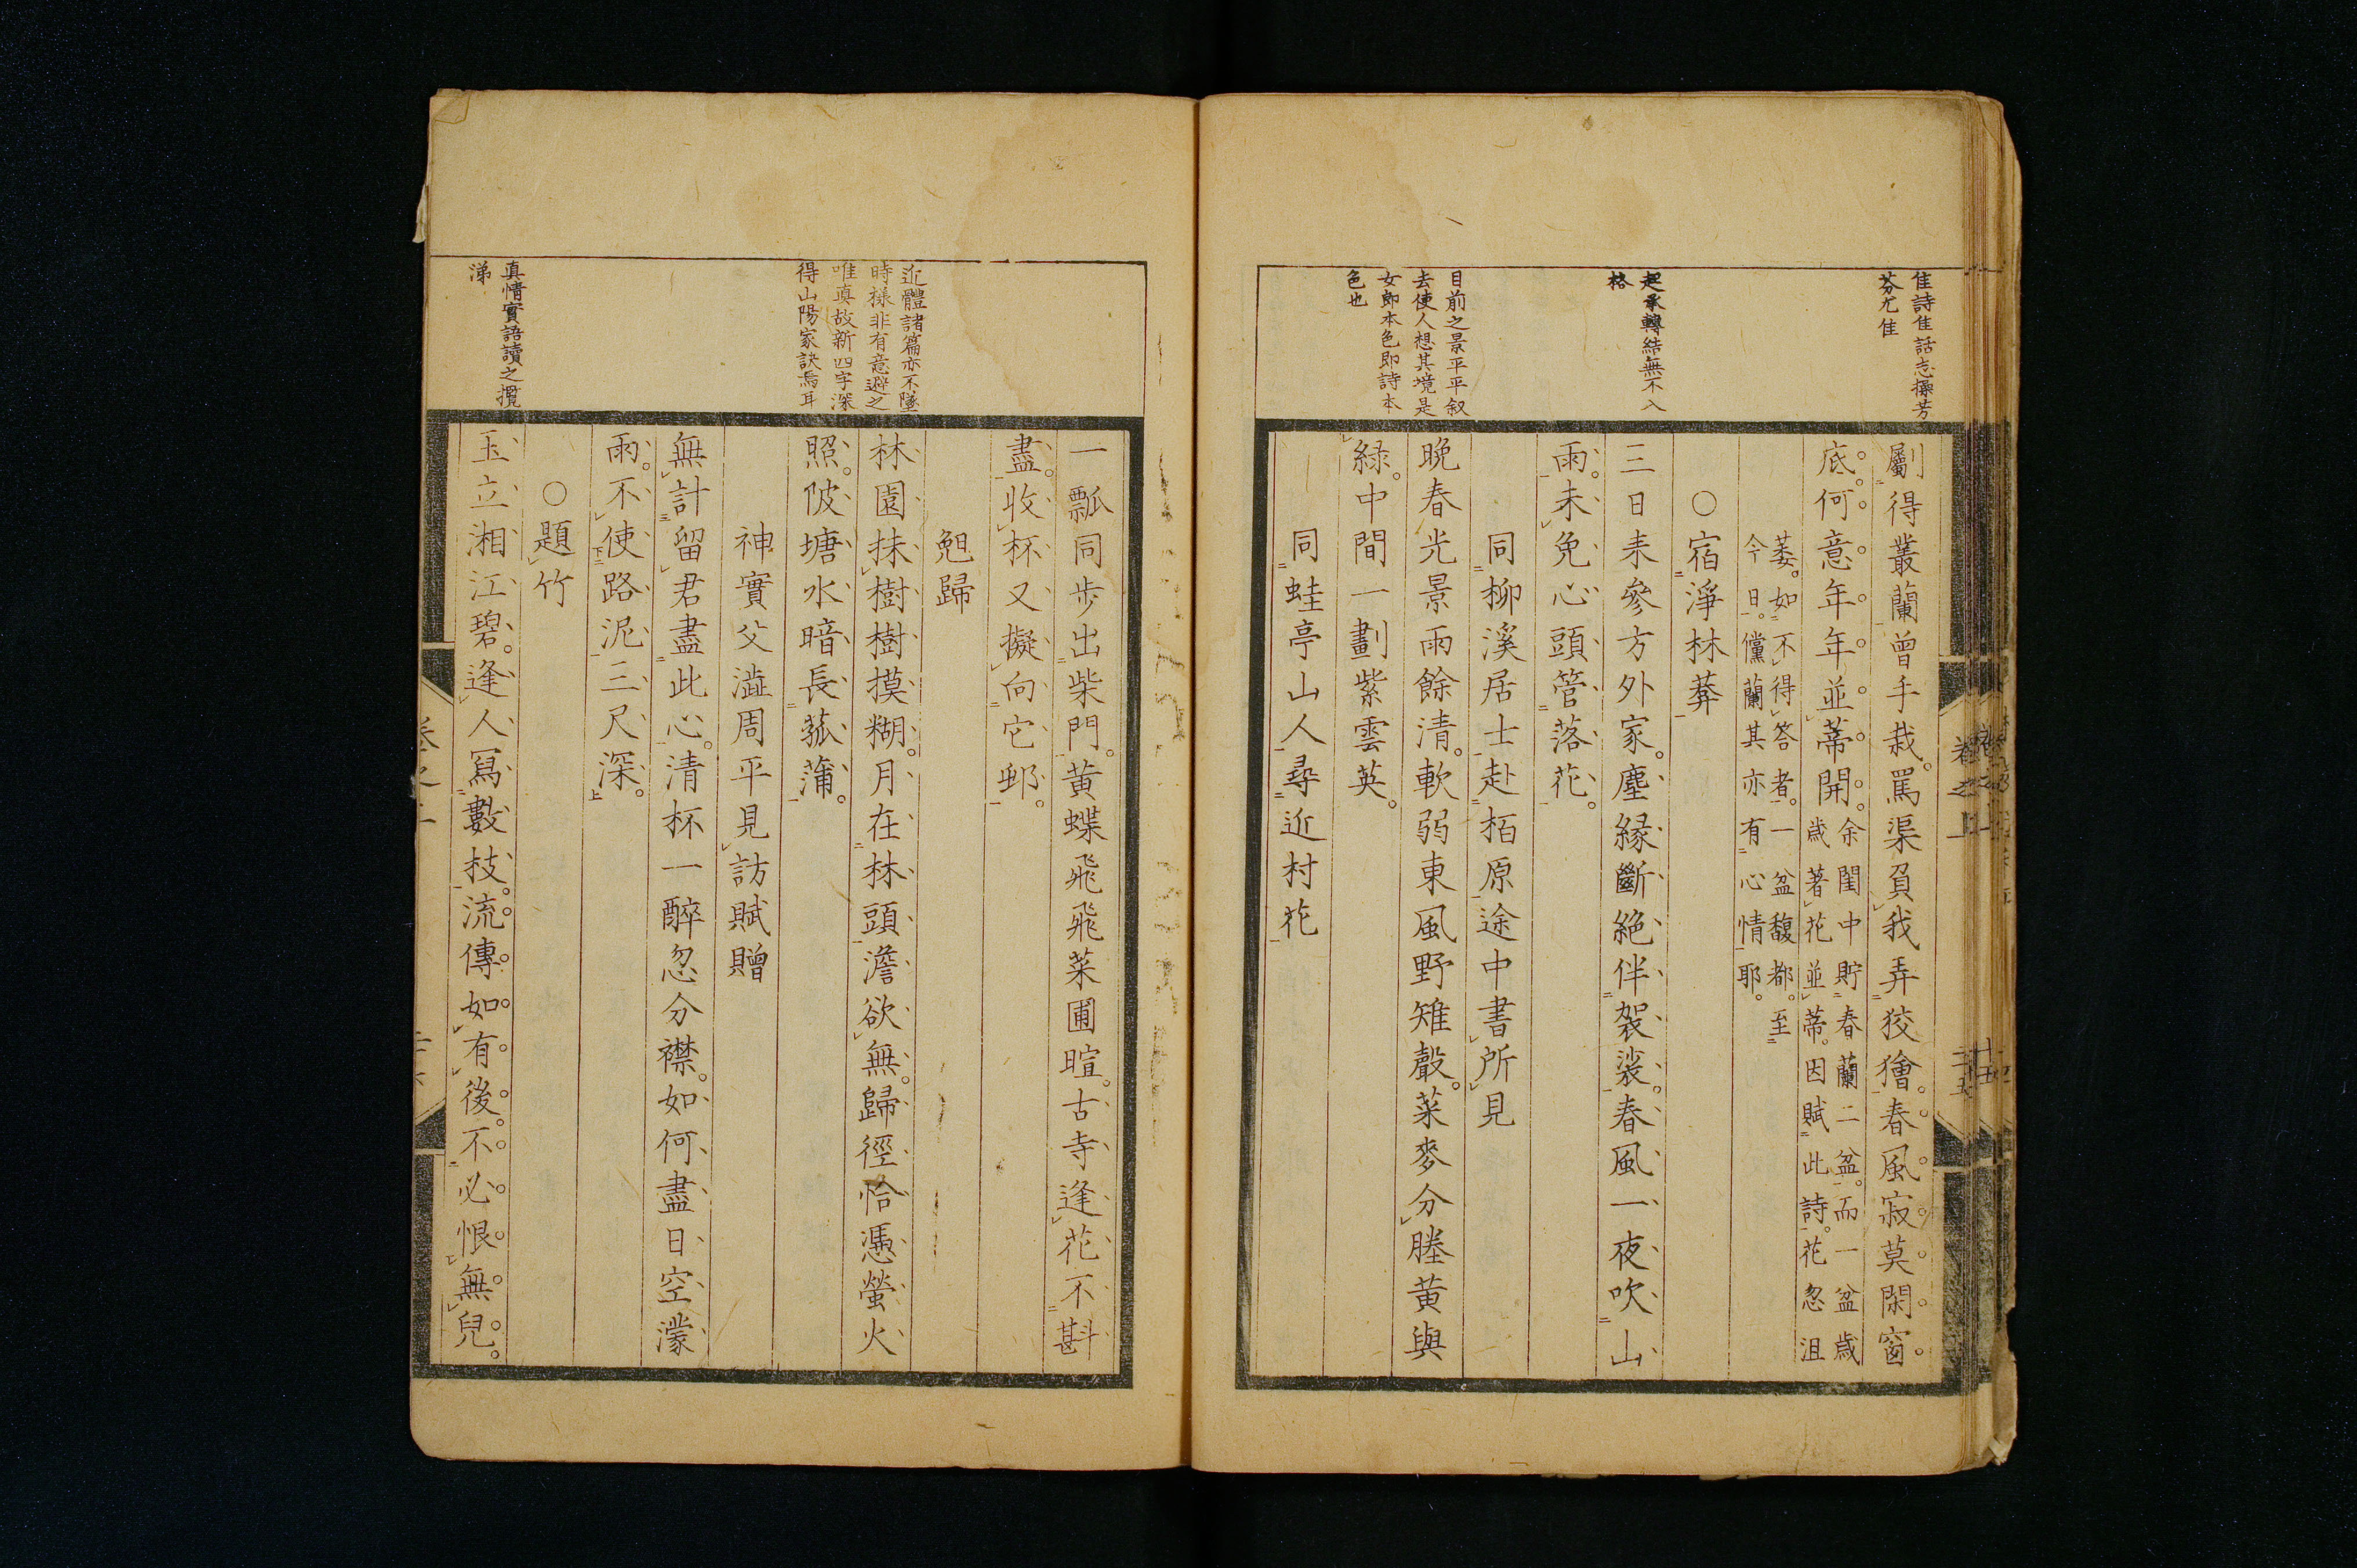 佳詩佳話志操芳
芬尤佳
斸得叢蘭曾手栽。罵渠負我弄狡獪。春風寂莫閑窗
底。何意年年並蒂開。余閨中貯春蘭二盆。而一盆歳
歳著花並蒂。因賦此詩。花忽沮
萎。如不得答者。一盆馥都。至
今日。儻蘭其亦有心情耶。
○宿淨林莾
起承轉結無不入
格
三日来參方外家。塵緣斷絶伴袈裟。春風一夜吹山
雨。未免心頭管落花。
同柳溪居士赴栢原途中書所見
目前之景平平叙
去使人想其境是
女郎本色即詩本
色也
晩春光景雨餘清。軟弱東風野雉聲。菜麥分塍黄與
緑。中間一劃紫雲英。
同蛙亭山人尋近村花
一瓢同歩出柴門。黄蝶飛飛菜圃暄。古寺逢花不斟
盡。收杯又擬向它邨。
夗歸
近體諸篇亦不墜
時樣非有意避之
唯真故新四字深
得山陽家訣焉耳
林園抹樹樹摸糊。月在林頭澹欲無。歸徑恰憑螢火
照。陂塘水暗長菰蒲。
神實父澁周平見訪賦贈
無計留君盡此心。清杯一醉忽分襟。如何盡日空濛
雨。不使路泥三尺深。
○題竹
真情實語讀之攬
涕
玉立湘江碧。逢人寫數枝。流傳如有後。不必恨無兒。